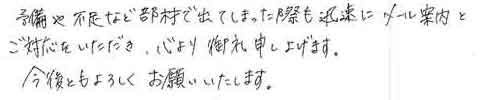 予備や不足など部材で出てしまった際も迅速にメール案内と
ご対応をいただき、心より御礼申し上げます。
今後ともよろしくお願いいたします。